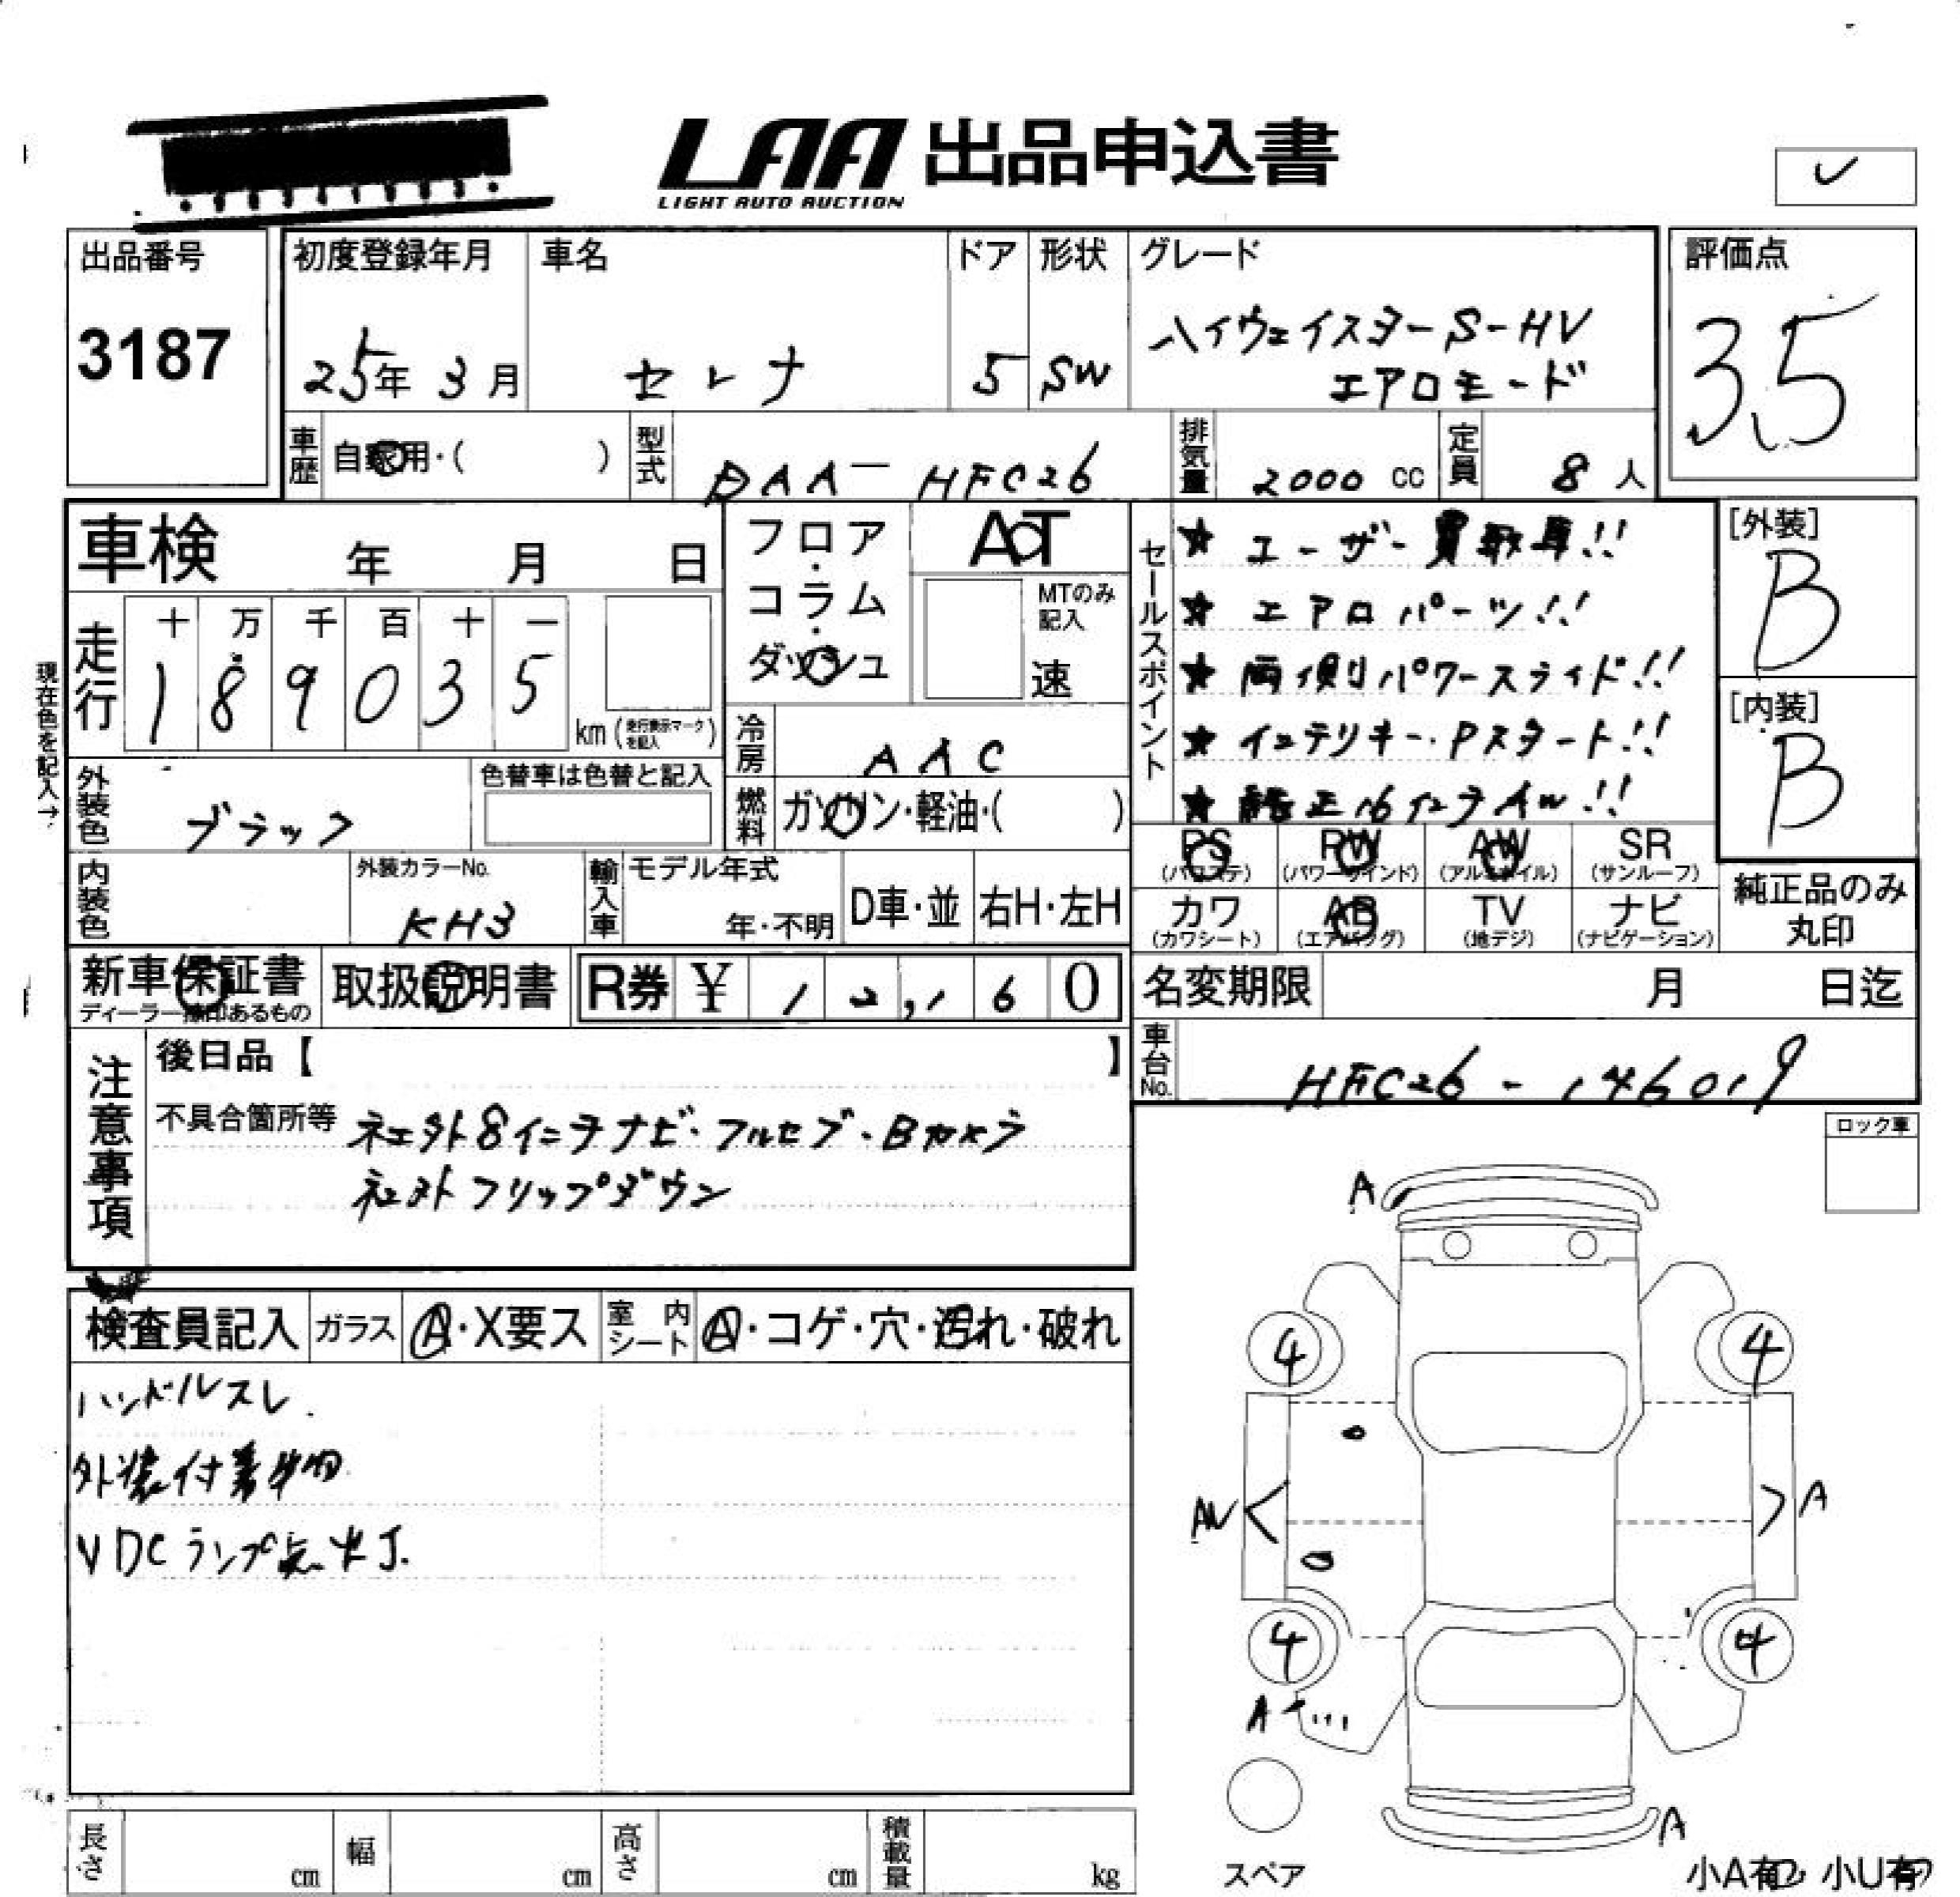 LAA 出品申込書
LIGHT AUTO AUCTION
✓
出品番号
3187
初度登録年月
25年 3月
車名
セレナ
ドア
5
形状
SW
グレード
ハイウェイスターS-HV
エアロモード
評価点
3.5
車歴
自家用・( )
型式
DAA-HFC26
排気量
2000 cc
定員
8 人
車検 年 月 日
フロア・コラム・ダッシュ
AT
MTのみ記入
速
セールスポイント
★ ユーザー買取車!!
★ エアロパーツ!!
★ 両側パワースライド!!
★ インテリキー・Pスタート!!
★ 純正16インチAW!!
[外装]
B
[内装]
B
現在色を記入→
走行
十 万 千 百 十 一
1 8 9 0 3 5
km (走行表示マークを記入)
冷房
AAC
外装色
ブラック
色替車は色替と記入
燃料
ガソリン・軽油・( )
PS (パワステ)
PW (パワーウインド)
AW (アルミホイル)
SR (サンルーフ)
内装色
外装カラーNo.
KH3
輸入車
モデル年式
年・不明
D車・並
右H・左H
カワ (カワシート)
AB (エアバッグ)
TV (地デジ)
ナビ (ナビゲーション)
純正品のみ丸印
新車保証書
ディーラー捺印あるもの
取扱説明書
R券 ¥ 12,160
名変期限 月 日迄
車台No.
HFC26-146019
注意事項
後日品【 】
不具合箇所等 社外8インチナビ・フルセグ・Bカメラ
社外フリップダウン
ロック車
検査員記入
ガラス
A・X要ス
室内シート
A・コゲ・穴・汚れ・破れ
ハンドルスレ
外装付着物
VDCランプ点灯
A
4
4
AV
A
4
4
A
A
スペア
小A有 小U有
長さ cm
幅 cm
高さ cm
積載量 kg